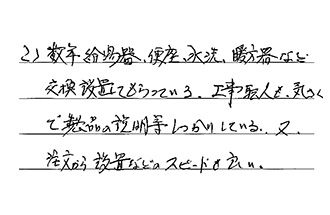 ここ数年給湯器、便座、水洗、暖房器など
交換設置してもらっている。工事の人も、気さく
で製品の説明等しっかりしている。又、
注文から設置などのスピードも広い。